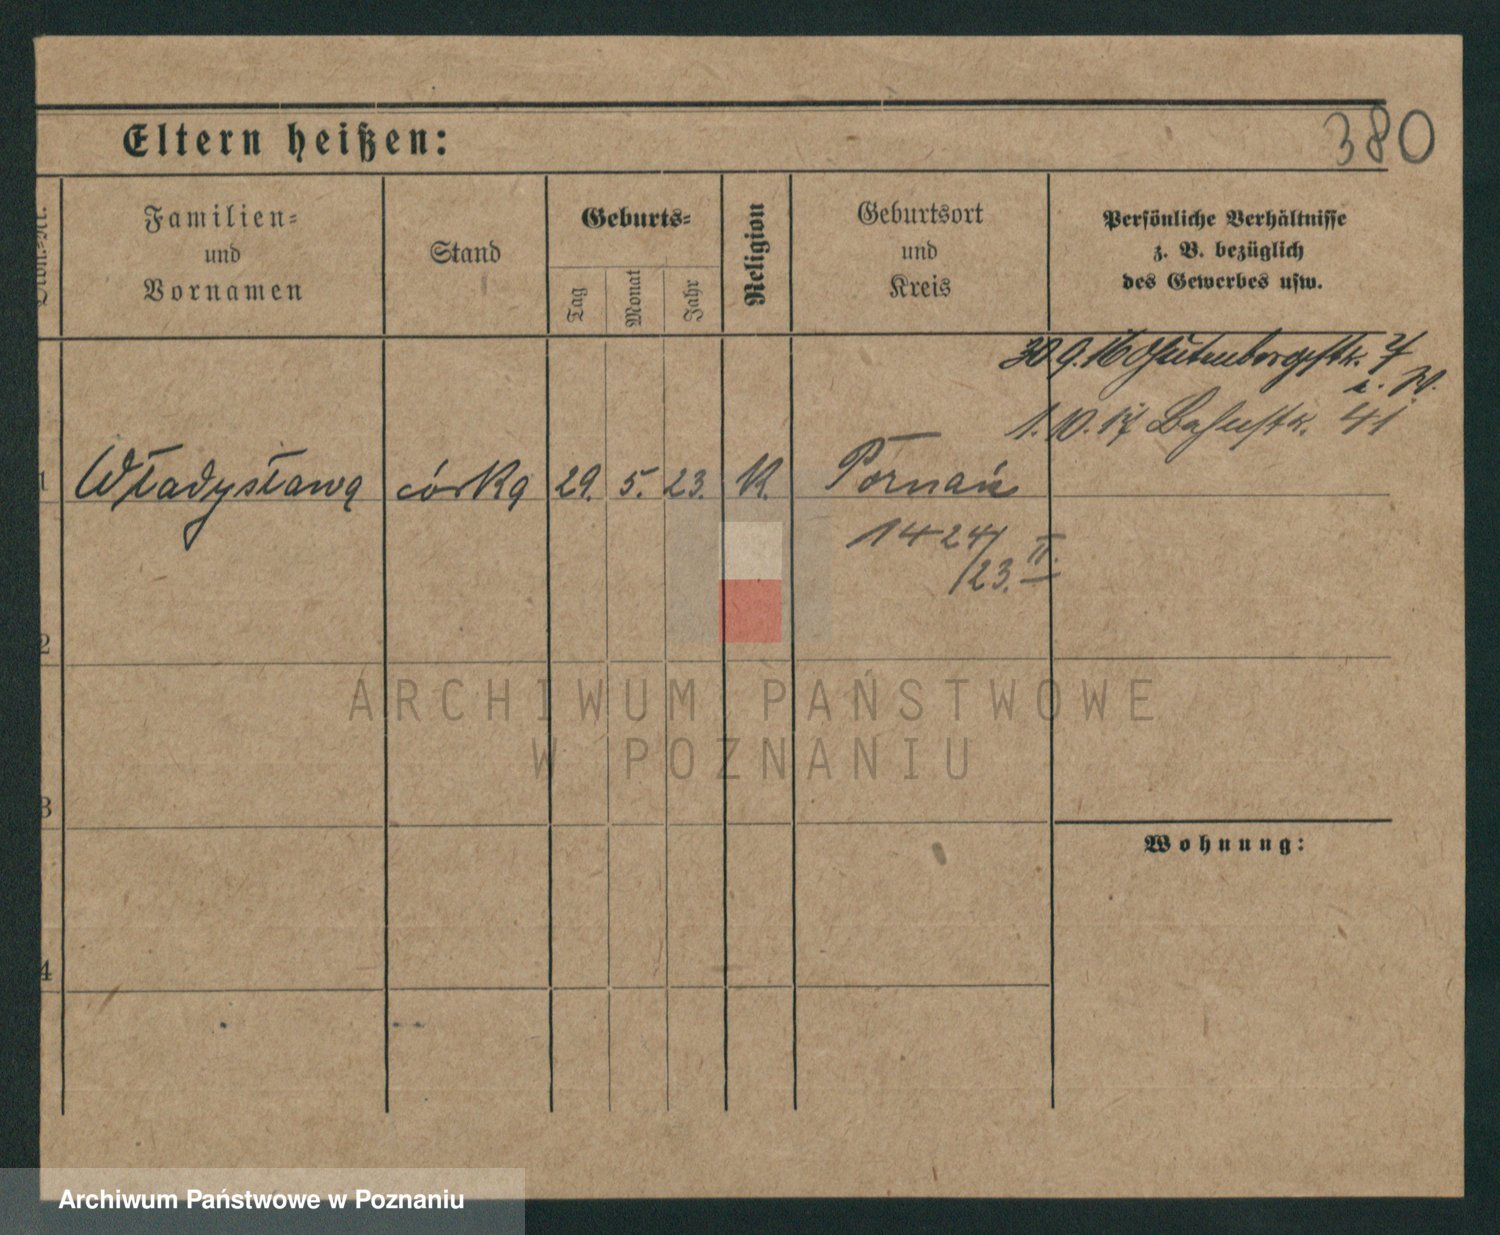 380
Eltern heißen:
Familien-
und
Vornamen
Stand
Geburts-
Tag
Monat
Jahr
Religion
Geburtsort
und
Kreis
Persönliche Verhältnisse
z. B. bezüglich
des Gewerbes usw.
30.9.16 Gutenbergstr. 7
1.10.17 Bahnstr. 41
1 Władysława córka 29. 5. 23. K. Poznań
1424/23. II.
2
3
Wohnung:
4
ARCHIWUM PAŃSTWOWE
W POZNANIU
Archiwum Państwowe w Poznaniu